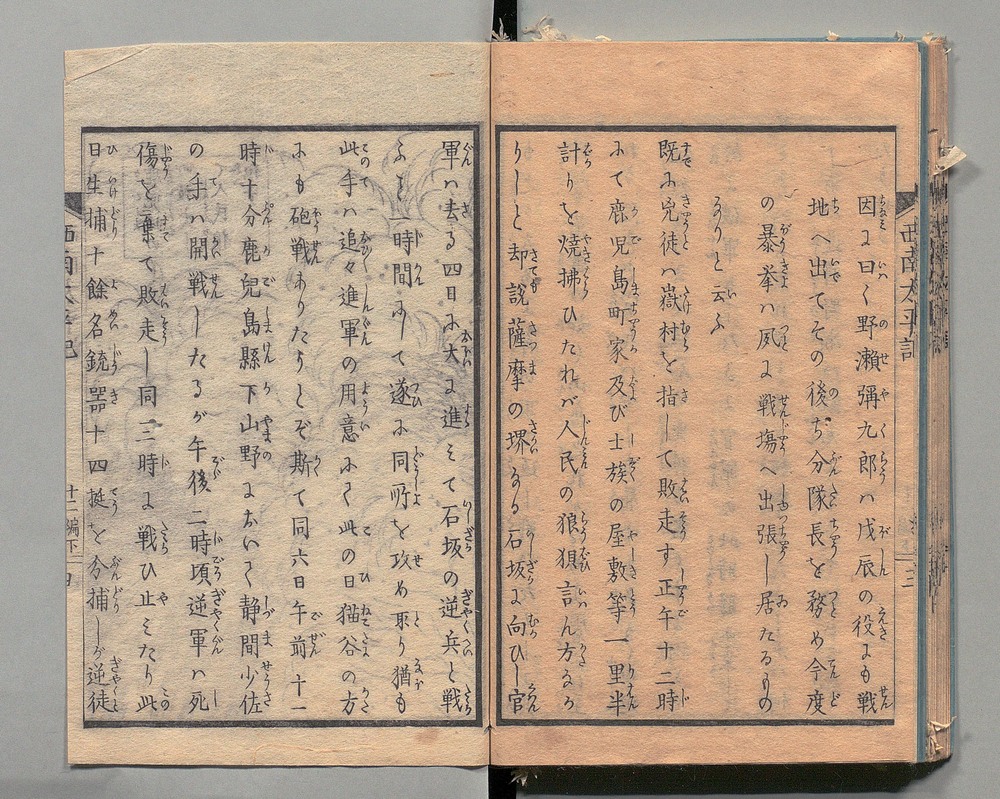 因に曰く野瀬彌九郎ハ戊辰の役にも戦
地へ出てその後ち分隊長を務め今度
の暴挙ハ夙に戦塲へ出張し居たるもの
なりと云ふ
既に兇徒ハ嶽村を指して敗走す正午十二時
にて鹿児島町家及び士族の屋敷等一里半
計りを焼拂ひたれバ人民の狼狽言ん方なか
りしと却説薩摩の堺なる石坂に向ひし官
西南太平記
軍ハ去る四日に大に進ミて石坂の逆兵と戦
ふこと時間にして遂に同所を攻め取り猶も
此手ハ追々進軍の用意にて此の日猫谷の方
にも砲戦ありたりとぞ斯て同六日午前十一
時十分鹿兒島縣下山野において静間少佐
の手ハ開戦したるが午後二時頃逆軍ハ死
傷を棄て敗走し同三時に戦ひ止ミたり此
日生捕十餘名銃器十四挺を分捕しが逆徒
西南太平記
十二編下
四